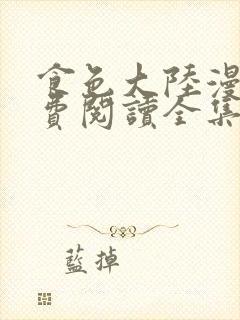 食色大陸漫
費閱讀全集
藍掉